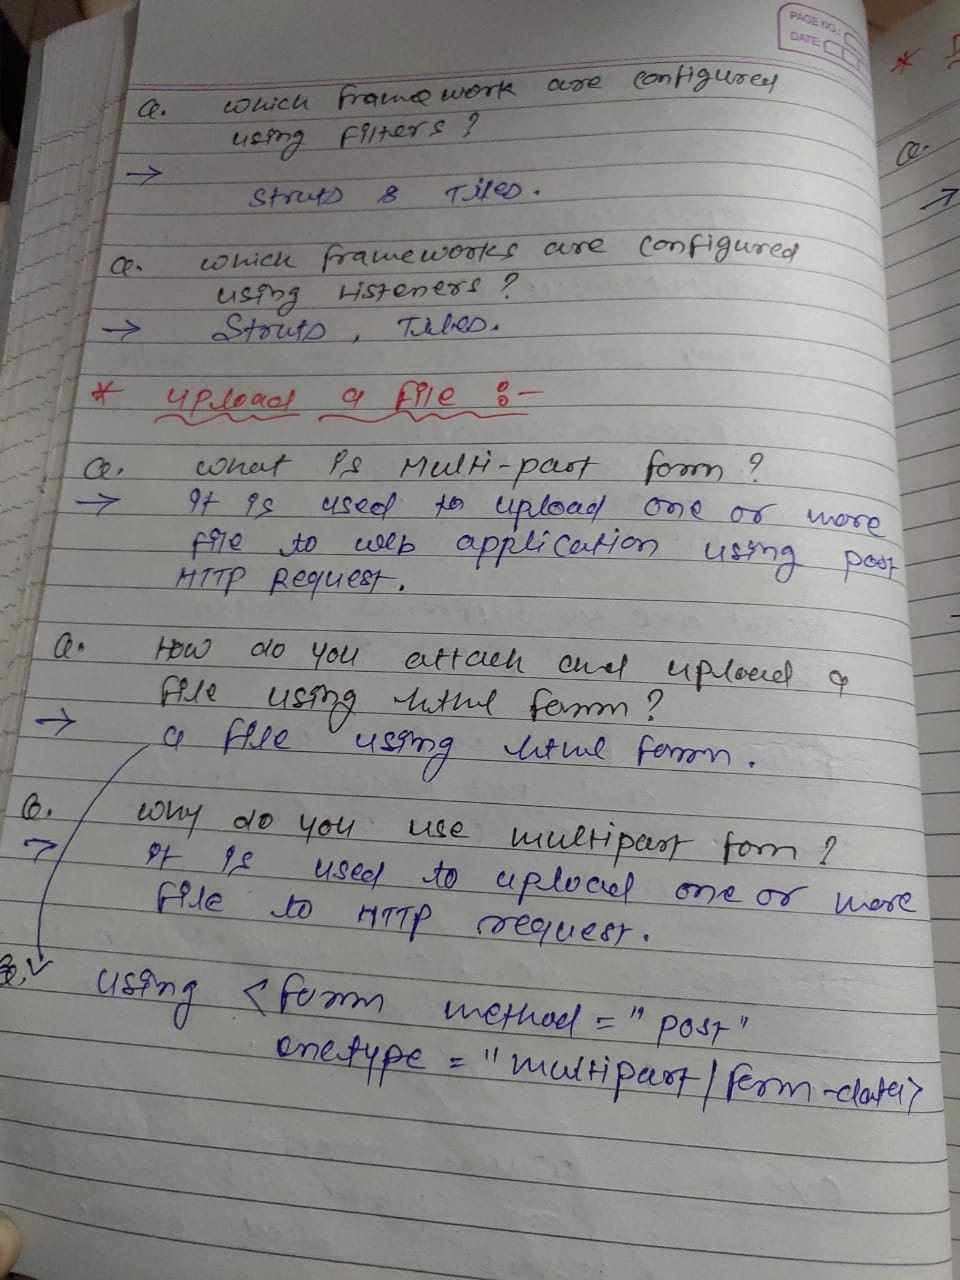 PAGE NO.:
DATE:
Q. which framework are configured
using filters ?
→
Struts & Tiles.
Q. which frameworks are configured
using Listeners ?
→ Struts, Tiles.
* upload a file :-
Q. what is Multi-part form ?
→ It is used to upload one or more
file to web application using post
HTTP Request.
Q. How do you attach and upload a
file using html form ?
→ a file using html form.
Q. why do you use multipart form ?
→ It is used to upload one or more
file to HTTP request.
using <form method = "post"
enctype = "multipart/form-data>
* 
Q.
→